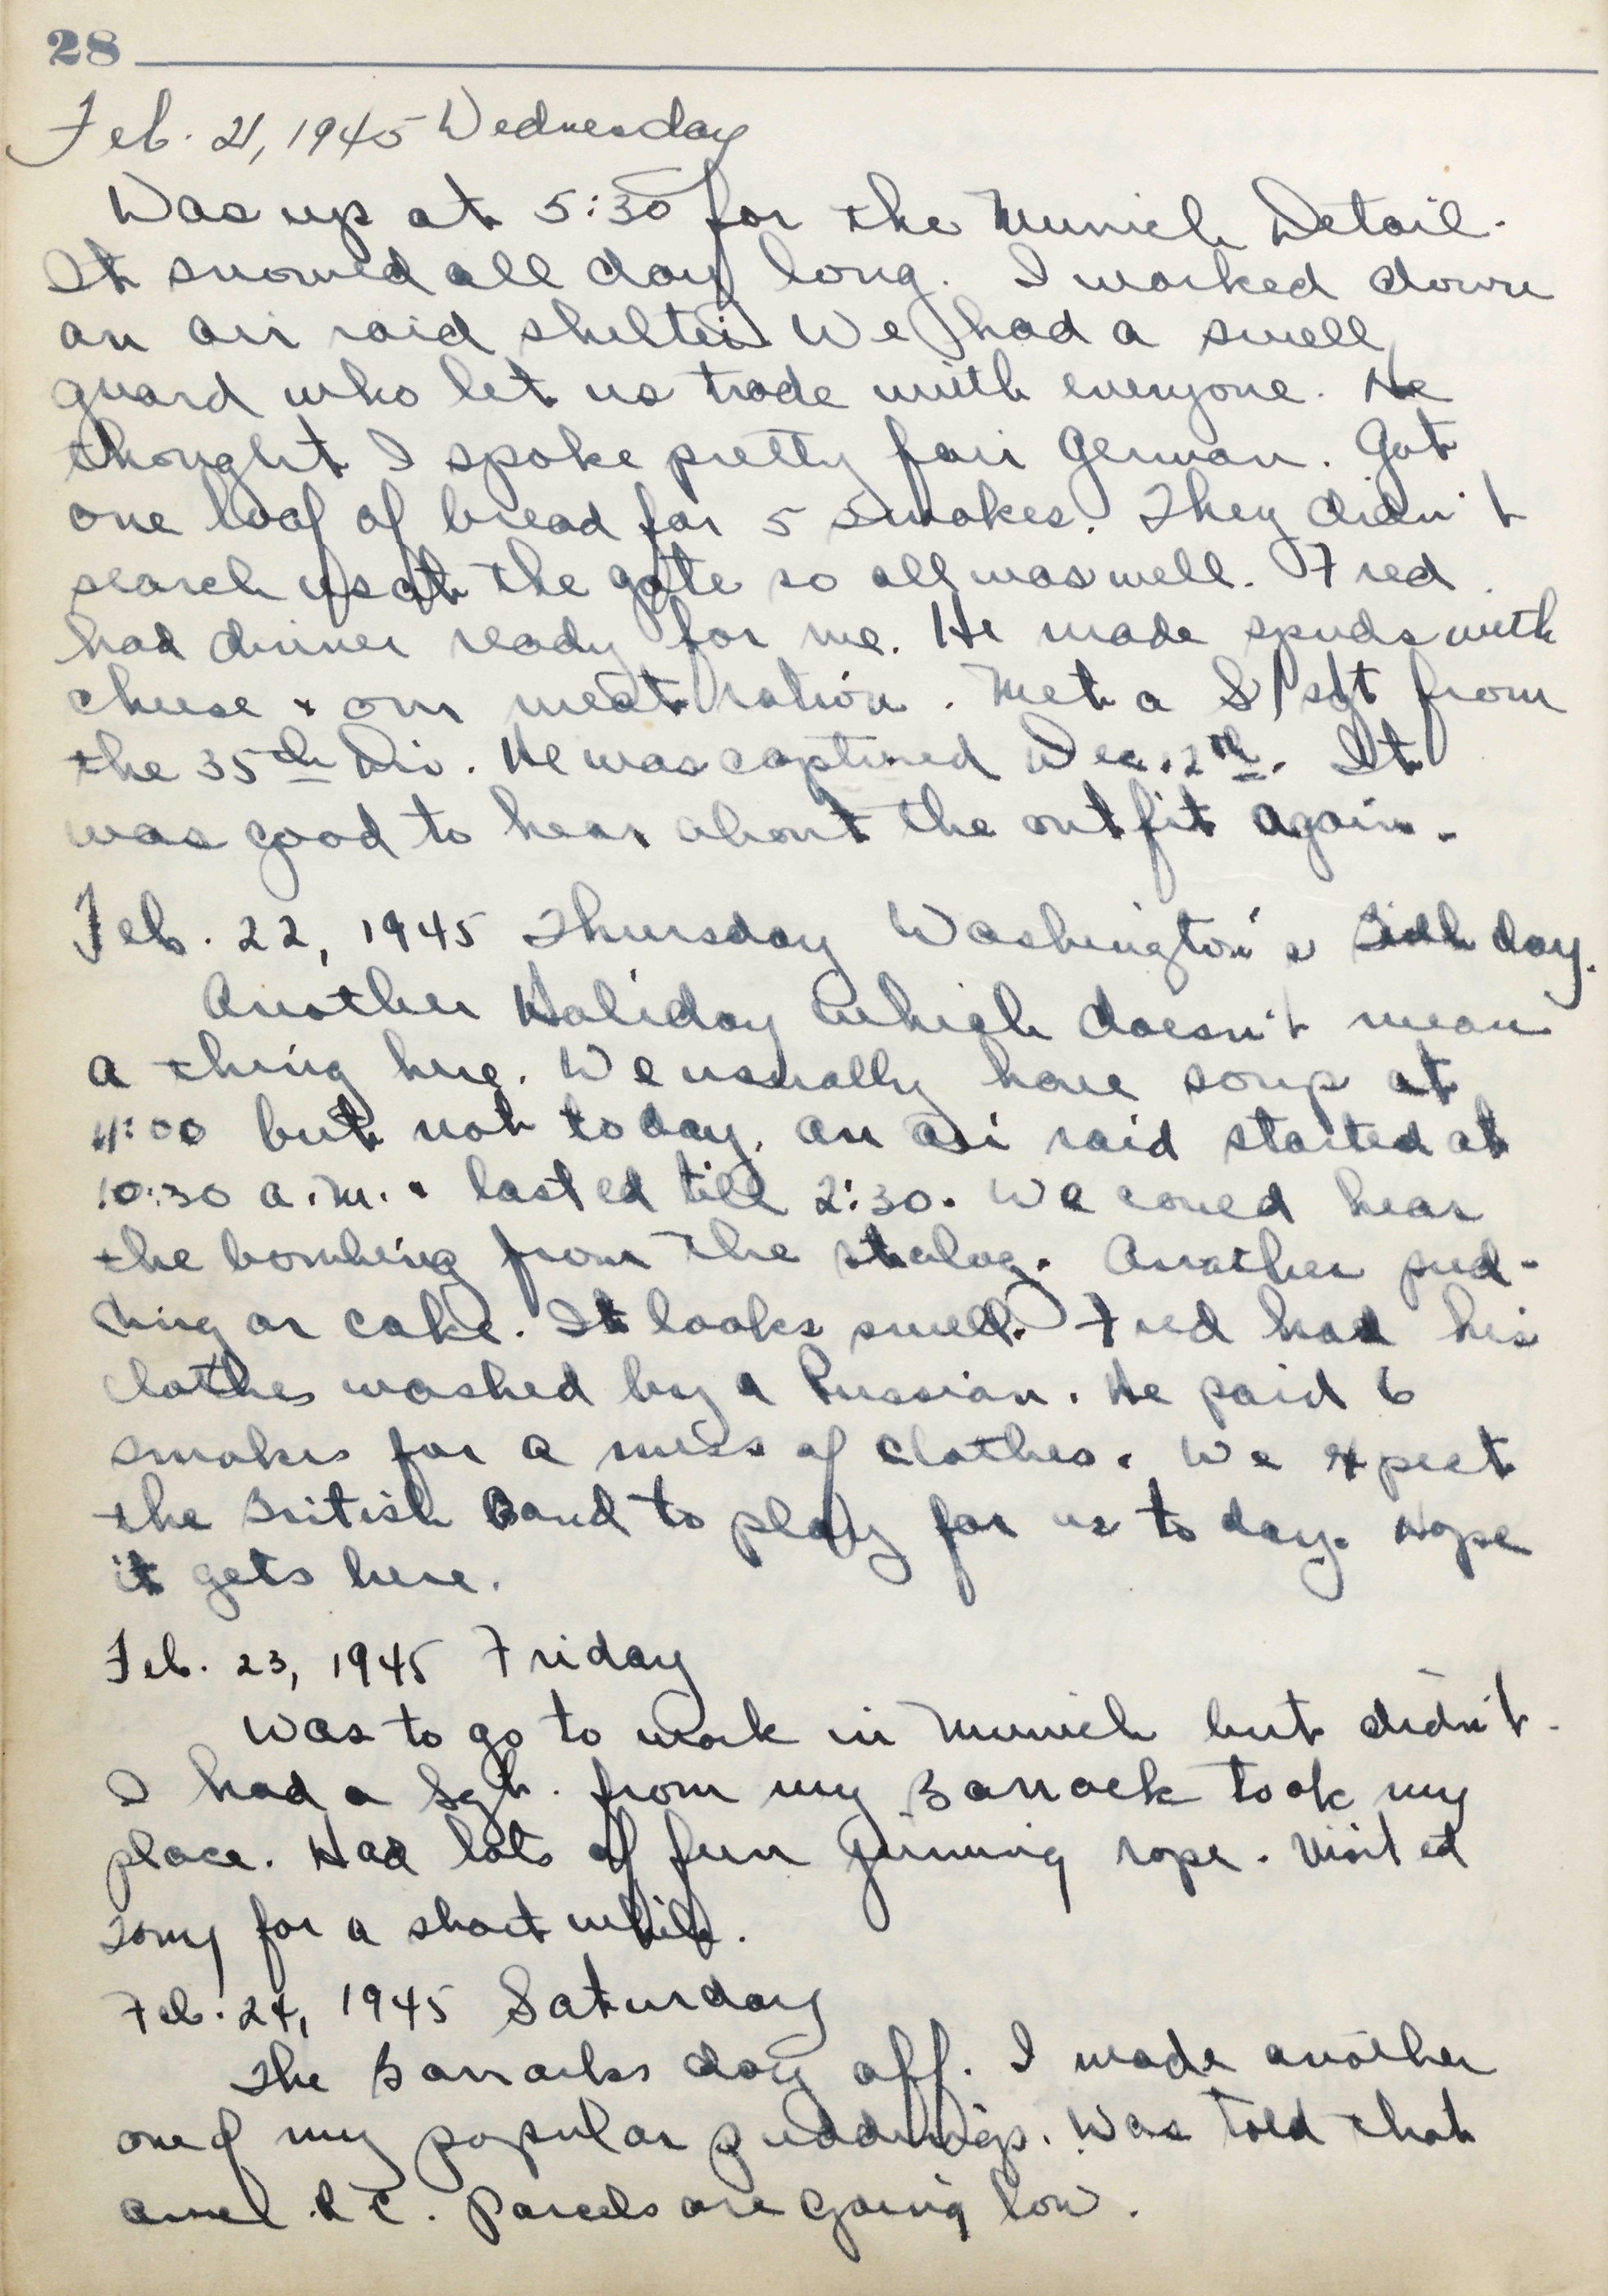 28
Feb. 21, 1945 Wednesday
Was up at 5:30 for the Munich Detail.
It snowed all day long. I worked down
an air raid shelter. We had a swell
guard who let us trade with everyone. He
thought I spoke pretty fair German. Got
one loaf of bread for 5 smokes. They didn't
search us at the gate so all was well. Fred
had dinner ready for me. He made spuds with
cheese & our meat ration. Met a S/sgt from
the 35th Div. He was captured Dec. 2th. It
was good to hear about the outfit again.
Feb. 22, 1945 Thursday Washington's Birthday.
Another Holiday which doesn't mean
a thing here. We usually have soup at
11:00 but not today. An air raid started at
10:30 a.m. & lasted till 2:30. We coued hear
the bombing from the stalag. Another pud-
ding or cake. It looks swell. Fred had his
clothes washed by a Russian. He paid 6
smokes for a mess of clothes. We expect
the British Band to play for us today. Hope
it gets here.
Feb. 23, 1945 Friday
Was to go to work in Munich but didn't.
I had a Sgt. from my Barrack took my
place. Had lots of fun jumping rope. Visited
Tony for a short while.
Feb. 24, 1945 Saturday
The Barracks day off. I made another
one of my popular puddings. Was told that
R C. Parcels are going low.